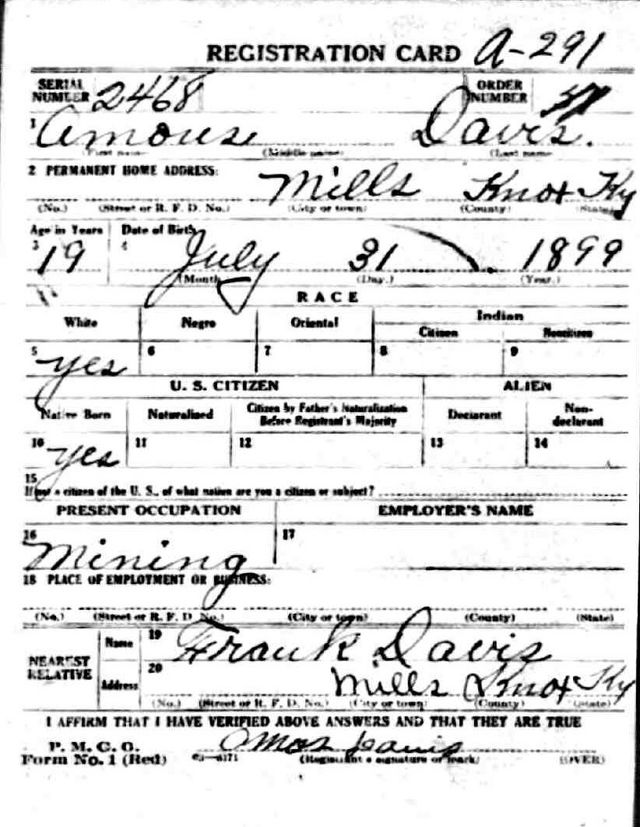 REGISTRATION CARD A-291
SERIAL NUMBER 2468 ORDER NUMBER
1 Amouse Davis.
(First name) (Middle name) (Last name)
2 PERMANENT HOME ADDRESS: Mills Knox Ky
(No.) (Street or R. F. D. No.) (City or town) (County) (State)
Age in Years Date of Birth
3 19 4 July 31 1899
(Month) (Day.) (Year.)
RACE
White Negro Oriental Indian
Citizen Noncitizen
5 yes 6 7 8 9
U. S. CITIZEN ALIEN
Native Born Naturalized Citizen by Father's Naturalization Before Registrant's Majority Declarant Non-declarant
10 yes 11 12 13 14
15
If not a citizen of the U. S., of what nation are you a citizen or subject?
PRESENT OCCUPATION EMPLOYER'S NAME
16 Mining 17
18 PLACE OF EMPLOYMENT OR BUSINESS:
(No.) (Street or R. F. D. No.) (City or town) (County) (State)
NEAREST RELATIVE Name 19 Frank Davis
Address 20 Mills Knox Ky
(No.) (Street or R. F. D. No.) (City or town) (County) (State)
I AFFIRM THAT I HAVE VERIFIED ABOVE ANSWERS AND THAT THEY ARE TRUE
P. M. G. O.
Form No. 1 (Red) 03—6171 Amos Davis
(Registrant's signature or mark) (OVER)